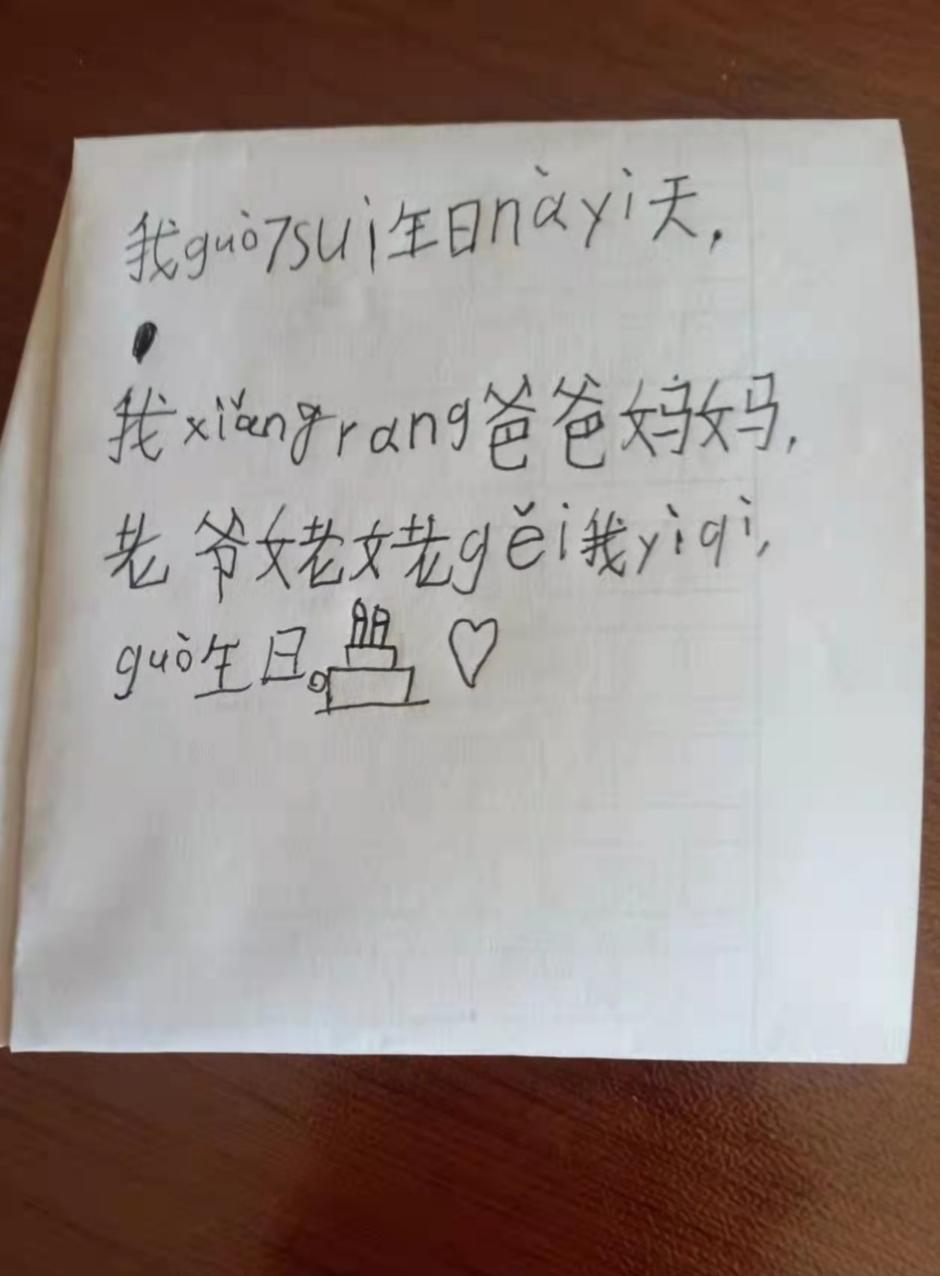 我guò7sui生日nàyi天,
我xiǎngrang爸爸妈妈,
老爷姥姥gěi我yìqi,
guò生日。